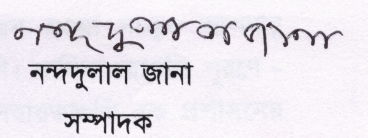 নন্দদুলাল জানা
নন্দদুলাল জানা
সম্পাদক